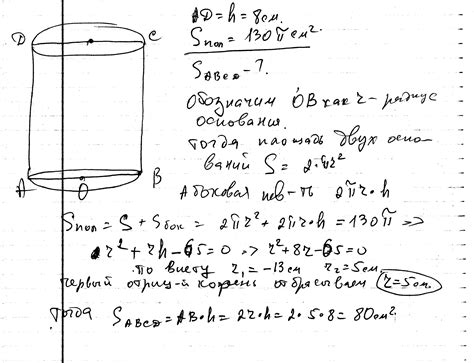 D C
AD = h = 8см.
Sпол = 130π см².
S ABCD - ?
Обозначим OB как r - радиус
основания.
Тогда площадь двух осно-
ваний S = 2·πr²
A B
O
А боковая пов-ть 2πr·h
Sпол = S + Sбок = 2πr² + 2πr·h = 130π =>
r² + rh - 65 = 0 => r² + 8r - 65 = 0
по виету r₁ = -13см r₂ = 5см
первый отриц-й корень отбрасываем r = 5см.
Тогда S ABCD = AB·h = 2r·h = 2·5·8 = 80см²